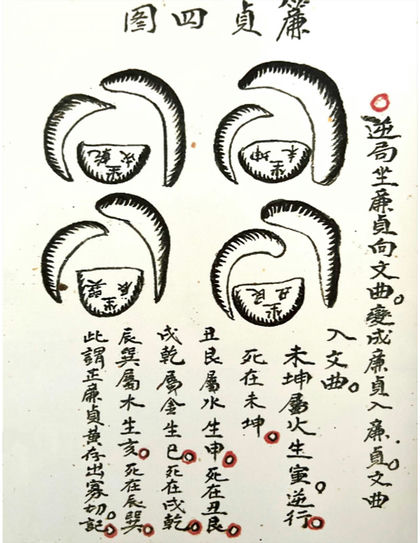 廉貞四圖
逆局坐廉貞向文曲變成廉貞入廉貞文曲
入文曲
未坤屬火生寅逆行
死在未坤
丑艮屬水生申死在丑艮
戌乾屬金生巳死在戌乾
辰巽屬水生亥死在辰巽
此謂正廉貞黃存出寡切記
未坤坐
戌乾坐
丑艮坐
辰巽坐